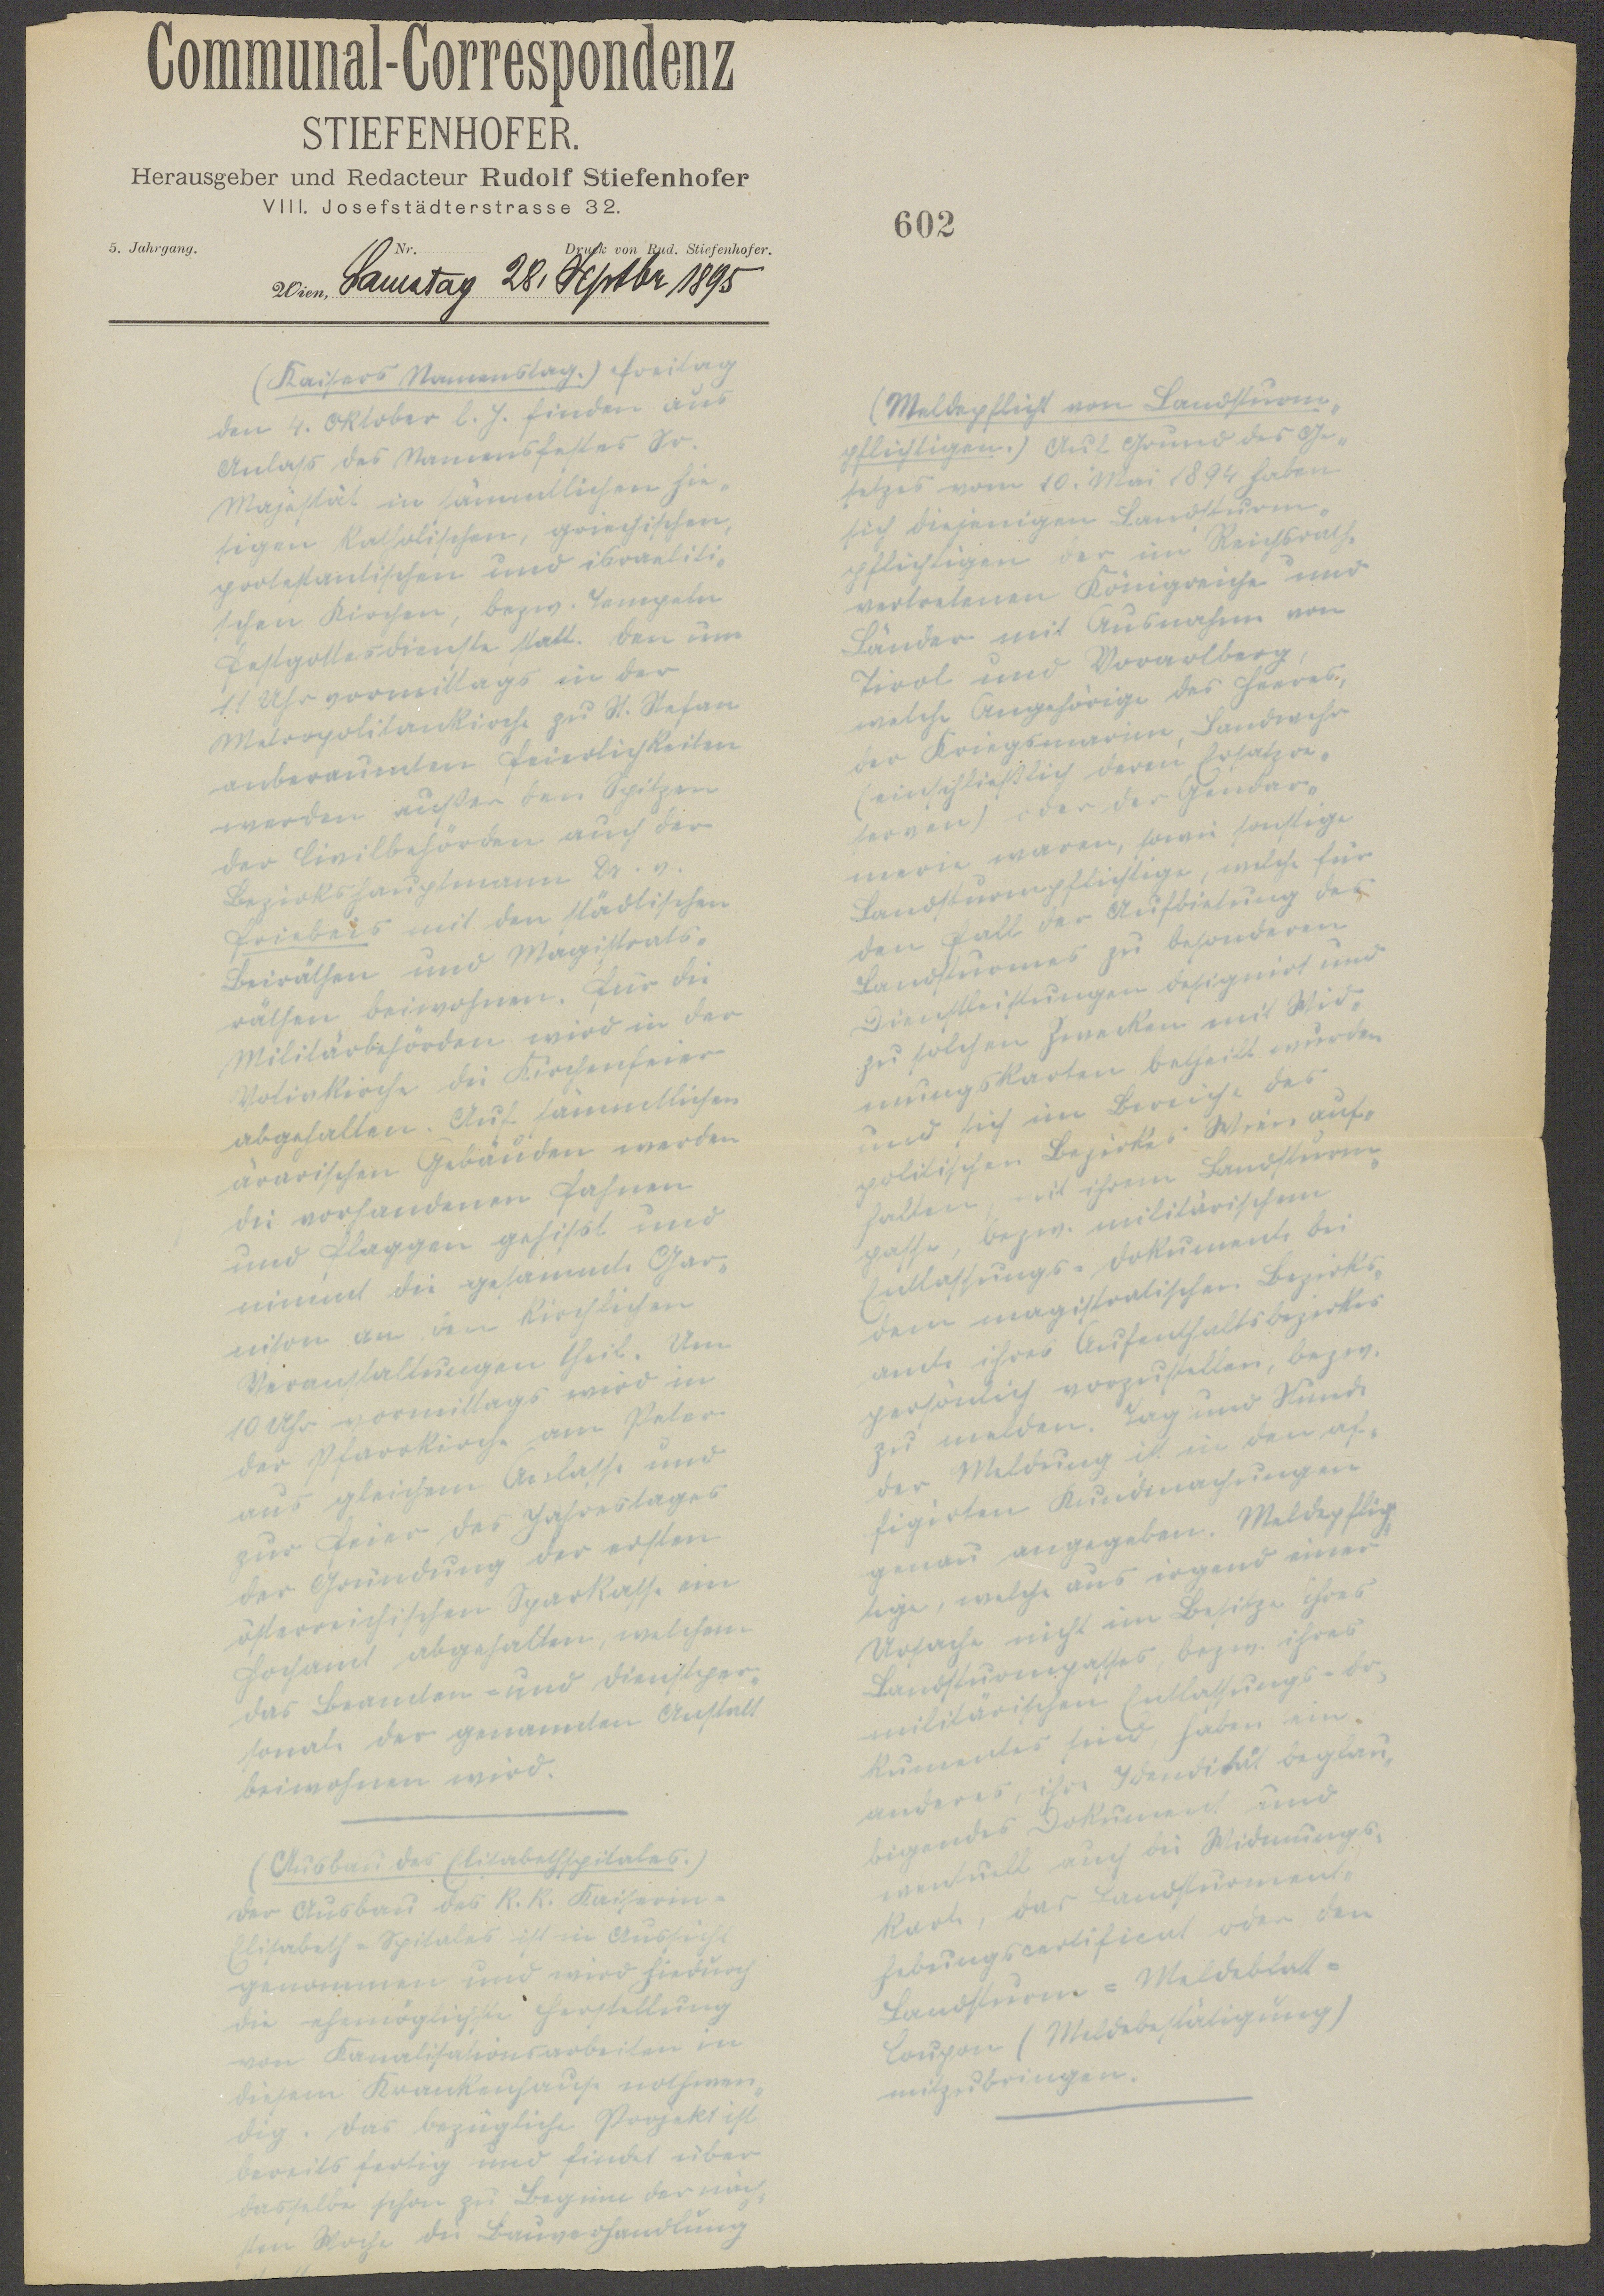 Communal-Correspondenz
STIEFENHOFER.
Herausgeber und Redacteur Rudolf Stiefenhofer
VIII. Josefstädterstrasse 32.
5. Jahrgang. Nr. Druck von Rud. Stiefenhofer.
Wien, Samstag 28. Septbr 1895
(Kaisers Namenstag.) Freitag
den 4. Oktober l. J. finden aus
Anlass des Namensfestes Sr.
Majestät in sämmtlichen hie„
sigen katholischen, griechischen,
protestantischen und israeliti„
schen Kirchen, bezw. Tempeln
Festgottesdienste statt. Den um
11 Uhr vormittags in der
Metropolitankirche zu St. Stefan
anberaumten Feierlichkeiten
werden außer den Spitzen
der Civilbehörden auch der
Bezirkshauptmann Dr. v.
Friebeis mit den städtischen
Beiräthen und Magistrats„
räthen beiwohnen. Für die
Militärbehörden wird in der
Votivkirche die Kirchenfeier
abgehalten. Auf sämmtlichen
ärarischen Gebäuden werden
die vorhandenen Fahnen
und Flaggen gehisst und
nimmt die gesammte Gar„
nison an den kirchlichen
Veranstaltungen theil. Um
10 Uhr vormittags wird in
der Pfarrkirche am Peter
aus gleichem Anlasse und
zur Feier des Jahrestages
der Gründung der ersten
österreichischen Sparkasse ein
Hochamt abgehalten, welchem
das Beamten- und Dienstper„
sonale der genannten Anstalt
beiwohnen wird.
(Ausbau des Elisabethspitales.)
Der Ausbau des k. k. Kaiserin-
Elisabeth-Spitales ist in Aussicht
genommen und wird hiedurch
die ehemöglichste Herstellung
von Kanalisationsarbeiten in
diesem Krankenhause nothwen„
dig. Das bezügliche Projekt ist
bereits fertig und findet über
dasselbe schon zu Beginn der näch„
sten Woche die Bauverhandlung
602
(Meldepflicht von Landsturm„
pflichtigen.) Auf Grund des Ge„
setzes vom 10. Mai 1894 haben
sich diejenigen Landsturm„
pflichtigen der im Reichsrathe
vertretenen Königreiche und
Länder mit Ausnahme von
Tirol und Vorarlberg,
welche Angehörige des Heeres,
der Kriegsmarine, Landwehr
(einschließlich deren Ersatzre„
serven) oder der Gendar„
merie waren, sowie sonstige
Landsturmpflichtige, welche für
den Fall der Aufbietung des
Landsturmes zu besonderen
Dienstleistungen designirt und
zu solchen Zwecken mit Wid„
mungskarten betheilt wurden
und sich im Bereiche des
politischen Bezirkes Wien auf„
halten, mit ihrem Landsturm„
passe, bezw. militärischem
Entlassungs-Dokumente bei
dem magistratischen Bezirks„
amte ihres Aufenthaltsbezirkes
persönlich vorzustellen, bezw.
zu melden. Tag und Stunde
der Meldung ist in den af„
figirten Kundmachungen
genau angegeben. Meldepflich„
tige, welche aus irgend einer
Ursache nicht im Besitze ihres
Landsturmpasses, bezw. ihres
militärischen Entlassungs-Do„
kumentes sind, haben ein
anderes, ihre Idendität beglau„
bigendes Dokument und
eventuell auch die Widmungs„
karte, das Landsturment„
hebungscertificat oder den
Landsturm-Meldeblatt-
Coupon (Meldebestätigung)
mitzubringen.